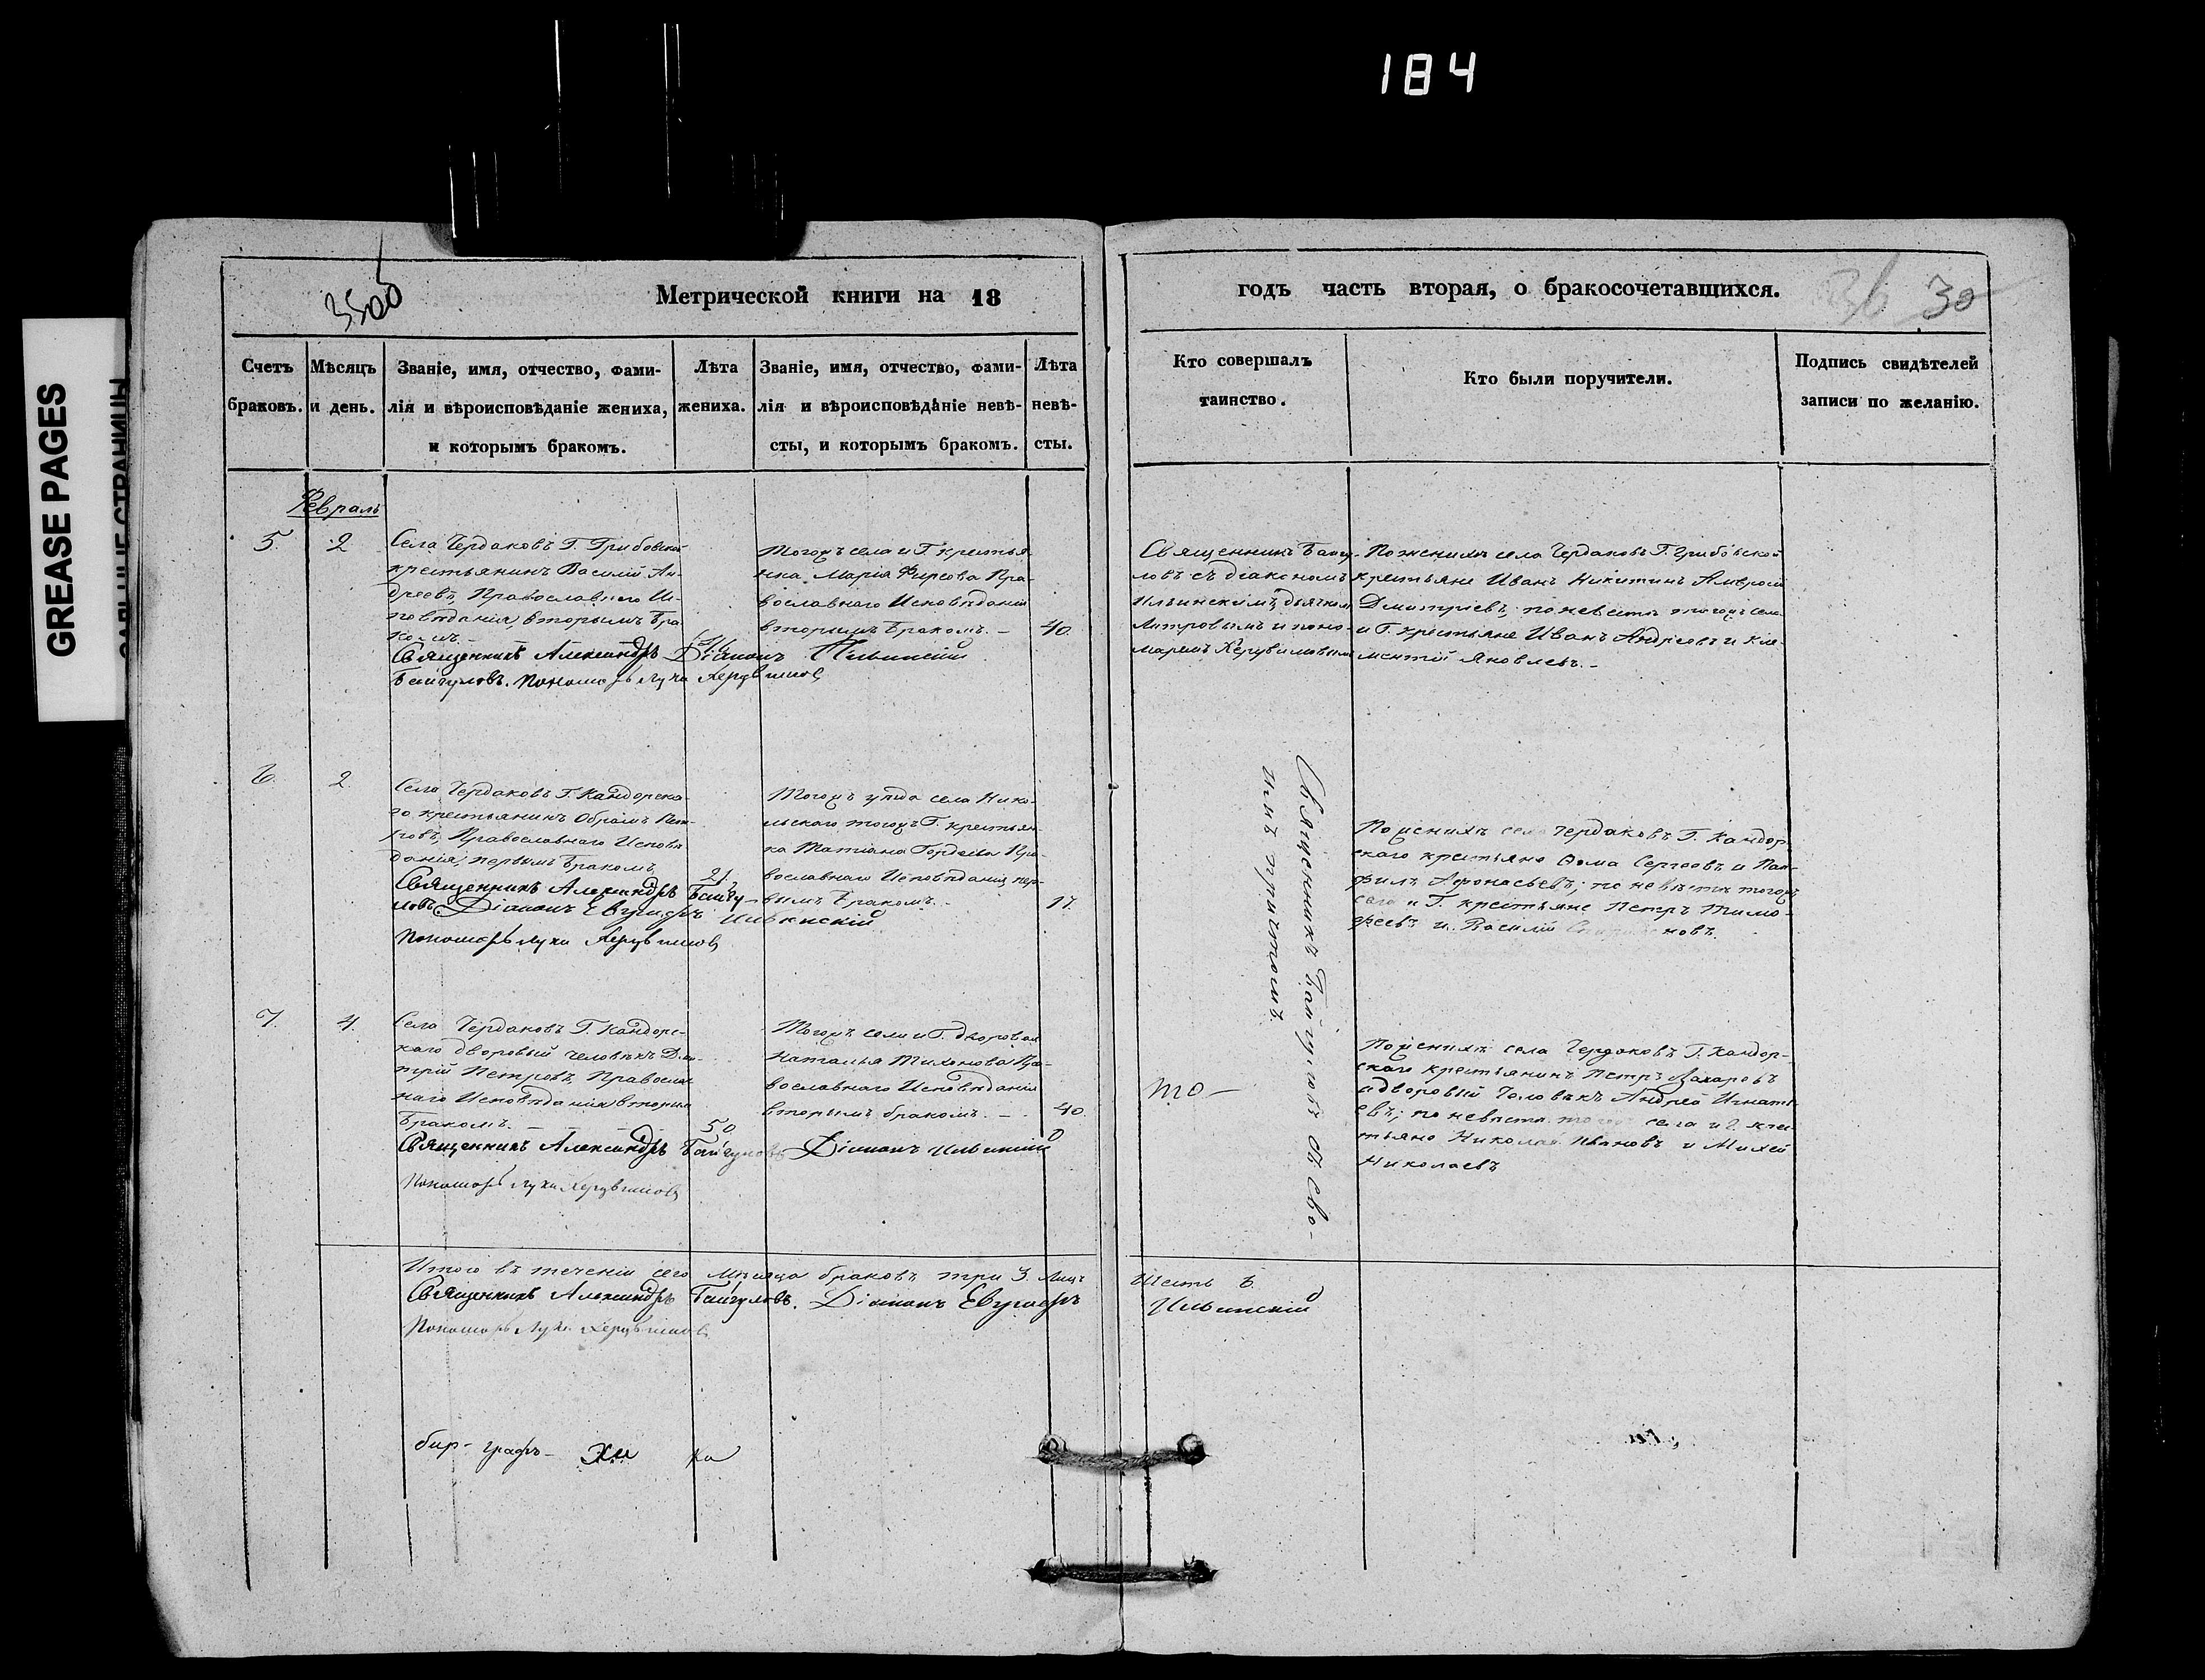 184
GREASE PAGES
Метрической книги на 18
годъ часть вторая, о бракосочетавшихся.
30
Счетъ
браковъ.
Мѣсяцъ
и день.
Званіе, имя, отчество, фами-
лія и вѣроисповѣданіе жениха,
и которымъ бракомъ.
Лѣта
жениха.
Званіе, имя, отчество, фами-
лія и вѣроисповѣданіе невѣ-
сты, и которымъ бракомъ.
Лѣта
невѣ-
сты.
Кто совершалъ
таинство.
Кто были поручители.
Подпись свидѣтелей
записи по желанію.
Февраль
5.
2
Села Чердаковъ Г. Грибовской
крестьянинъ Василій Ан-
дреевъ, Православнаго Ис-
повѣданія, вторымъ бра-
комъ. -
Священникъ Александръ
Байгуловъ. Пономарь Лука Херувимовъ
Діаконъ Ильинскій
Тогожъ села и Г. крестья-
нка Марія Фирсова Пра-
вославнаго Исповѣданія
вторымъ бракомъ. -
40.
Священникъ Байгу-
ловъ съ діакономъ
Ильинскимъ, дьячкомъ
и поно-
маремъ Херувимовымъ
По женихѣ села Чердаковъ Г. Грибовской
крестьяне Иванъ Никитинъ Амвросій
Дмитріевъ; по невѣстѣ тогожъ села
и Г. крестьяне Иванъ Андреевъ и Кли-
ментій Яковлевъ. -
6.
2.
Села Чердаковъ Г. Кандорска-
го крестьянинъ Обрамъ Пет-
ровъ, Православнаго Исповѣ-
данія, первымъ бракомъ,
21.
Священникъ Александръ Байгу-
ловъ. Діаконъ Евграфъ Ильинскій
Пономарь Лука Херувимовъ
Тогожъ уѣзда села Нико-
льскаго тогожъ Г. крестьян-
ка Татіана Гордеева Пра-
вославнаго Исповѣданія пер-
вымъ бракомъ. -
17.
Священникъ Байгуловъ съ сво-
имъ причтомъ.
По женихѣ села Чердаковъ Г. Кандор-
скаго крестьяне Ѳома Сергеевъ и Пан-
филъ Афонасьевъ; по невѣстѣ тогожъ
села и Г. крестьяне Петръ Тимо-
феевъ и Василій
7.
4.
Села Чердаковъ Г. Кандорс-
каго дворовый человѣкъ Дми-
трій Петровъ, Православ-
наго Исповѣданія вторымъ
бракомъ. -
50
Священникъ Александръ Байгуловъ Діаконъ Ильинскій
Пономарь Лука Херувимовъ
Тогожъ села и Г. дворовая
Наталья Тихонова Пра-
вославнаго Исповѣданія
вторымъ бракомъ. -
40.
то -
По женихѣ села Чердаковъ Г. Кандор-
скаго крестьянинъ Петръ Захаровъ
и дворовый человѣкъ Андрей Игнать-
евъ; по невѣстѣ тогожъ села и Г. крес-
тьяне Николай Ивановъ и Михей
Николаевъ
Итого въ теченіи сего мѣсяца браковъ три 3. Лицъ шесть 6.
Священникъ Александръ Байгуловъ. Діаконъ Евграфъ Ильинскій
Пономарь Лука Херувимовъ